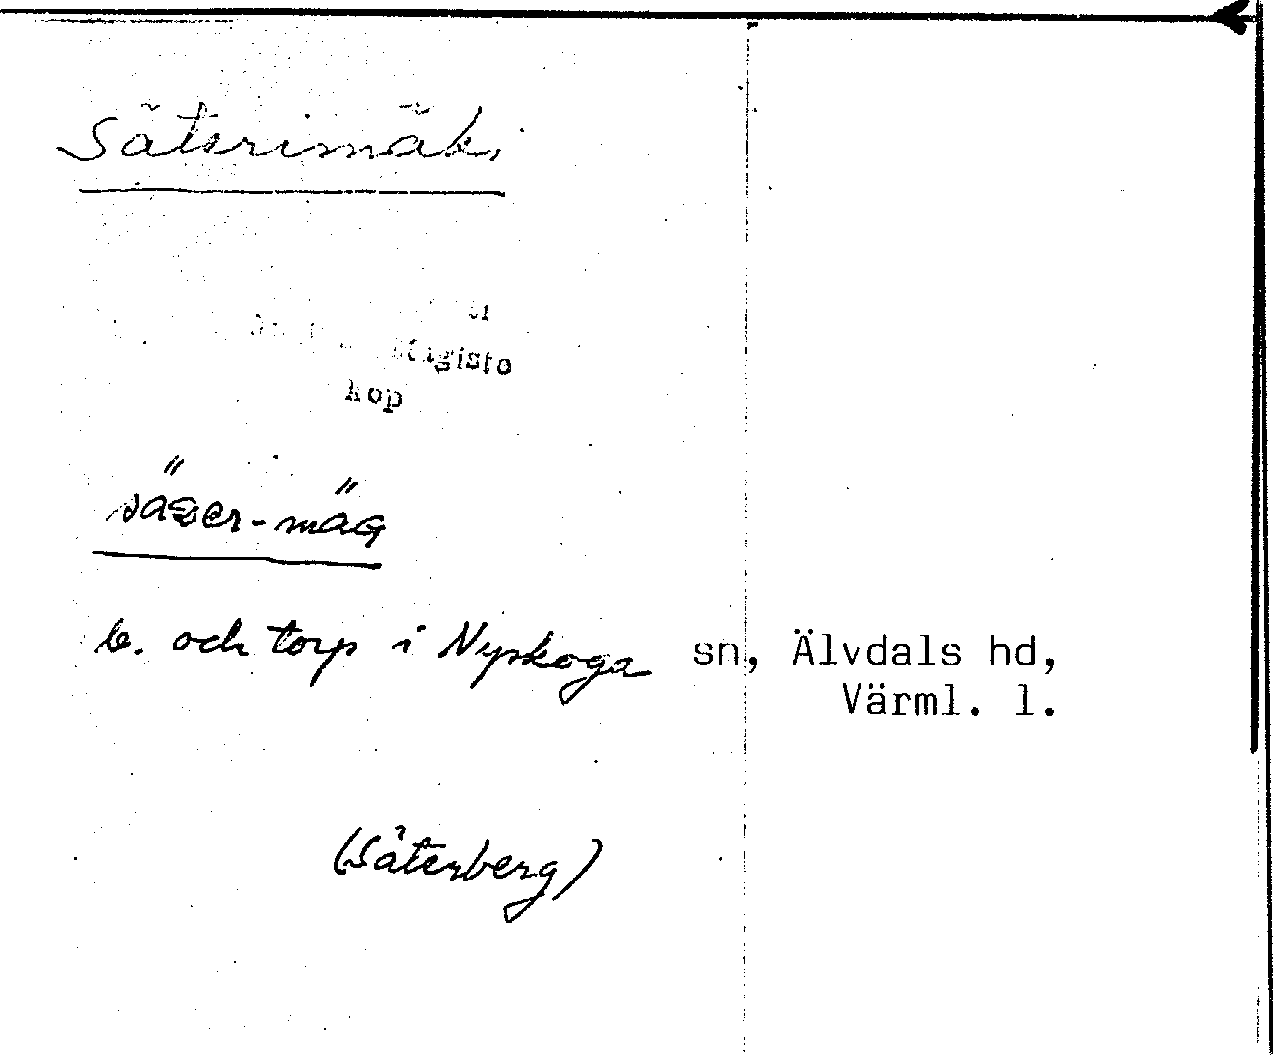 Säterimäki
kop
säDer-mäG
b. och torp i Nyskoga sn, Älvdals hd,
Värml. l.
(Säterberg)